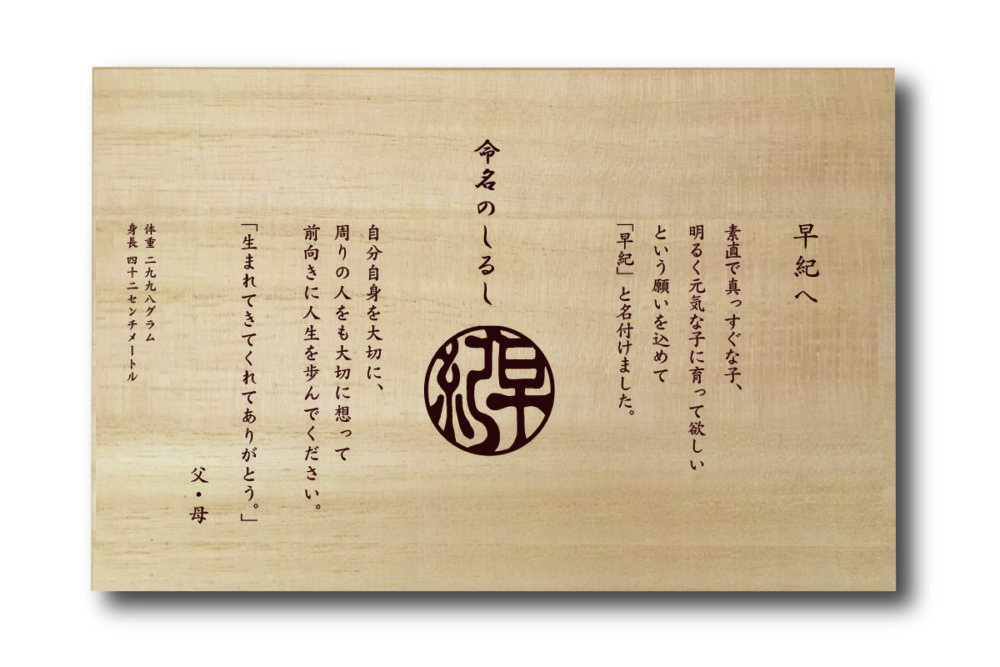 早紀へ
素直で真っすぐな子、
明るく元気な子に育って欲しい
という願いを込めて
「早紀」と名付けました。
命名のしるし
早紀
自分自身を大切に、
周りの人をも大切に想って
前向きに人生を歩んでください。
「生まれてきてくれてありがとう。」
父・母
体重 二九九八グラム
身長 四十二センチメートル